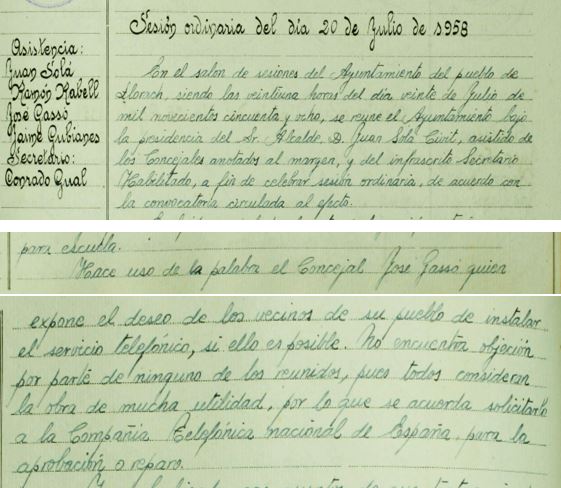 Sesión ordinaria del día 20 de Julio de 1958
Asistencia:
Juan Solá
Ramón Kabell
José Gassó
Jaime Gubianes
Secretario:
Conrado Gual
En el salon de sesiones del Ayuntamiento del pueblo de
Llorach, siendo las veintiuna horas del día veinte de Julio de
mil novecientos cincuenta y ocho, se reune el Ayuntamiento bajo
la presidencia del Sr. Alcalde, D. Juan Solá Civit, asistido de
los Concejales anotados al margen, y del infrascrito Secretario
Habilitado, a fin de celebrar sesión ordinaria, de acuerdo con
la convocatoria circulada al efecto.
para escuela.
Hace uso de la palabra el Concejal José Gassó quien
expone el deseo de los vecinos de su pueblo de instalar
el servicio telefónico, si ello es posible. No encuentra objeción
por parte de ninguno de los reunidos, pues todos consideran
la obra de mucha utilidad, por lo que se acuerda solicitarlo
a la Compañia Telefónica nacional de España, para la
aprobación o reparo.